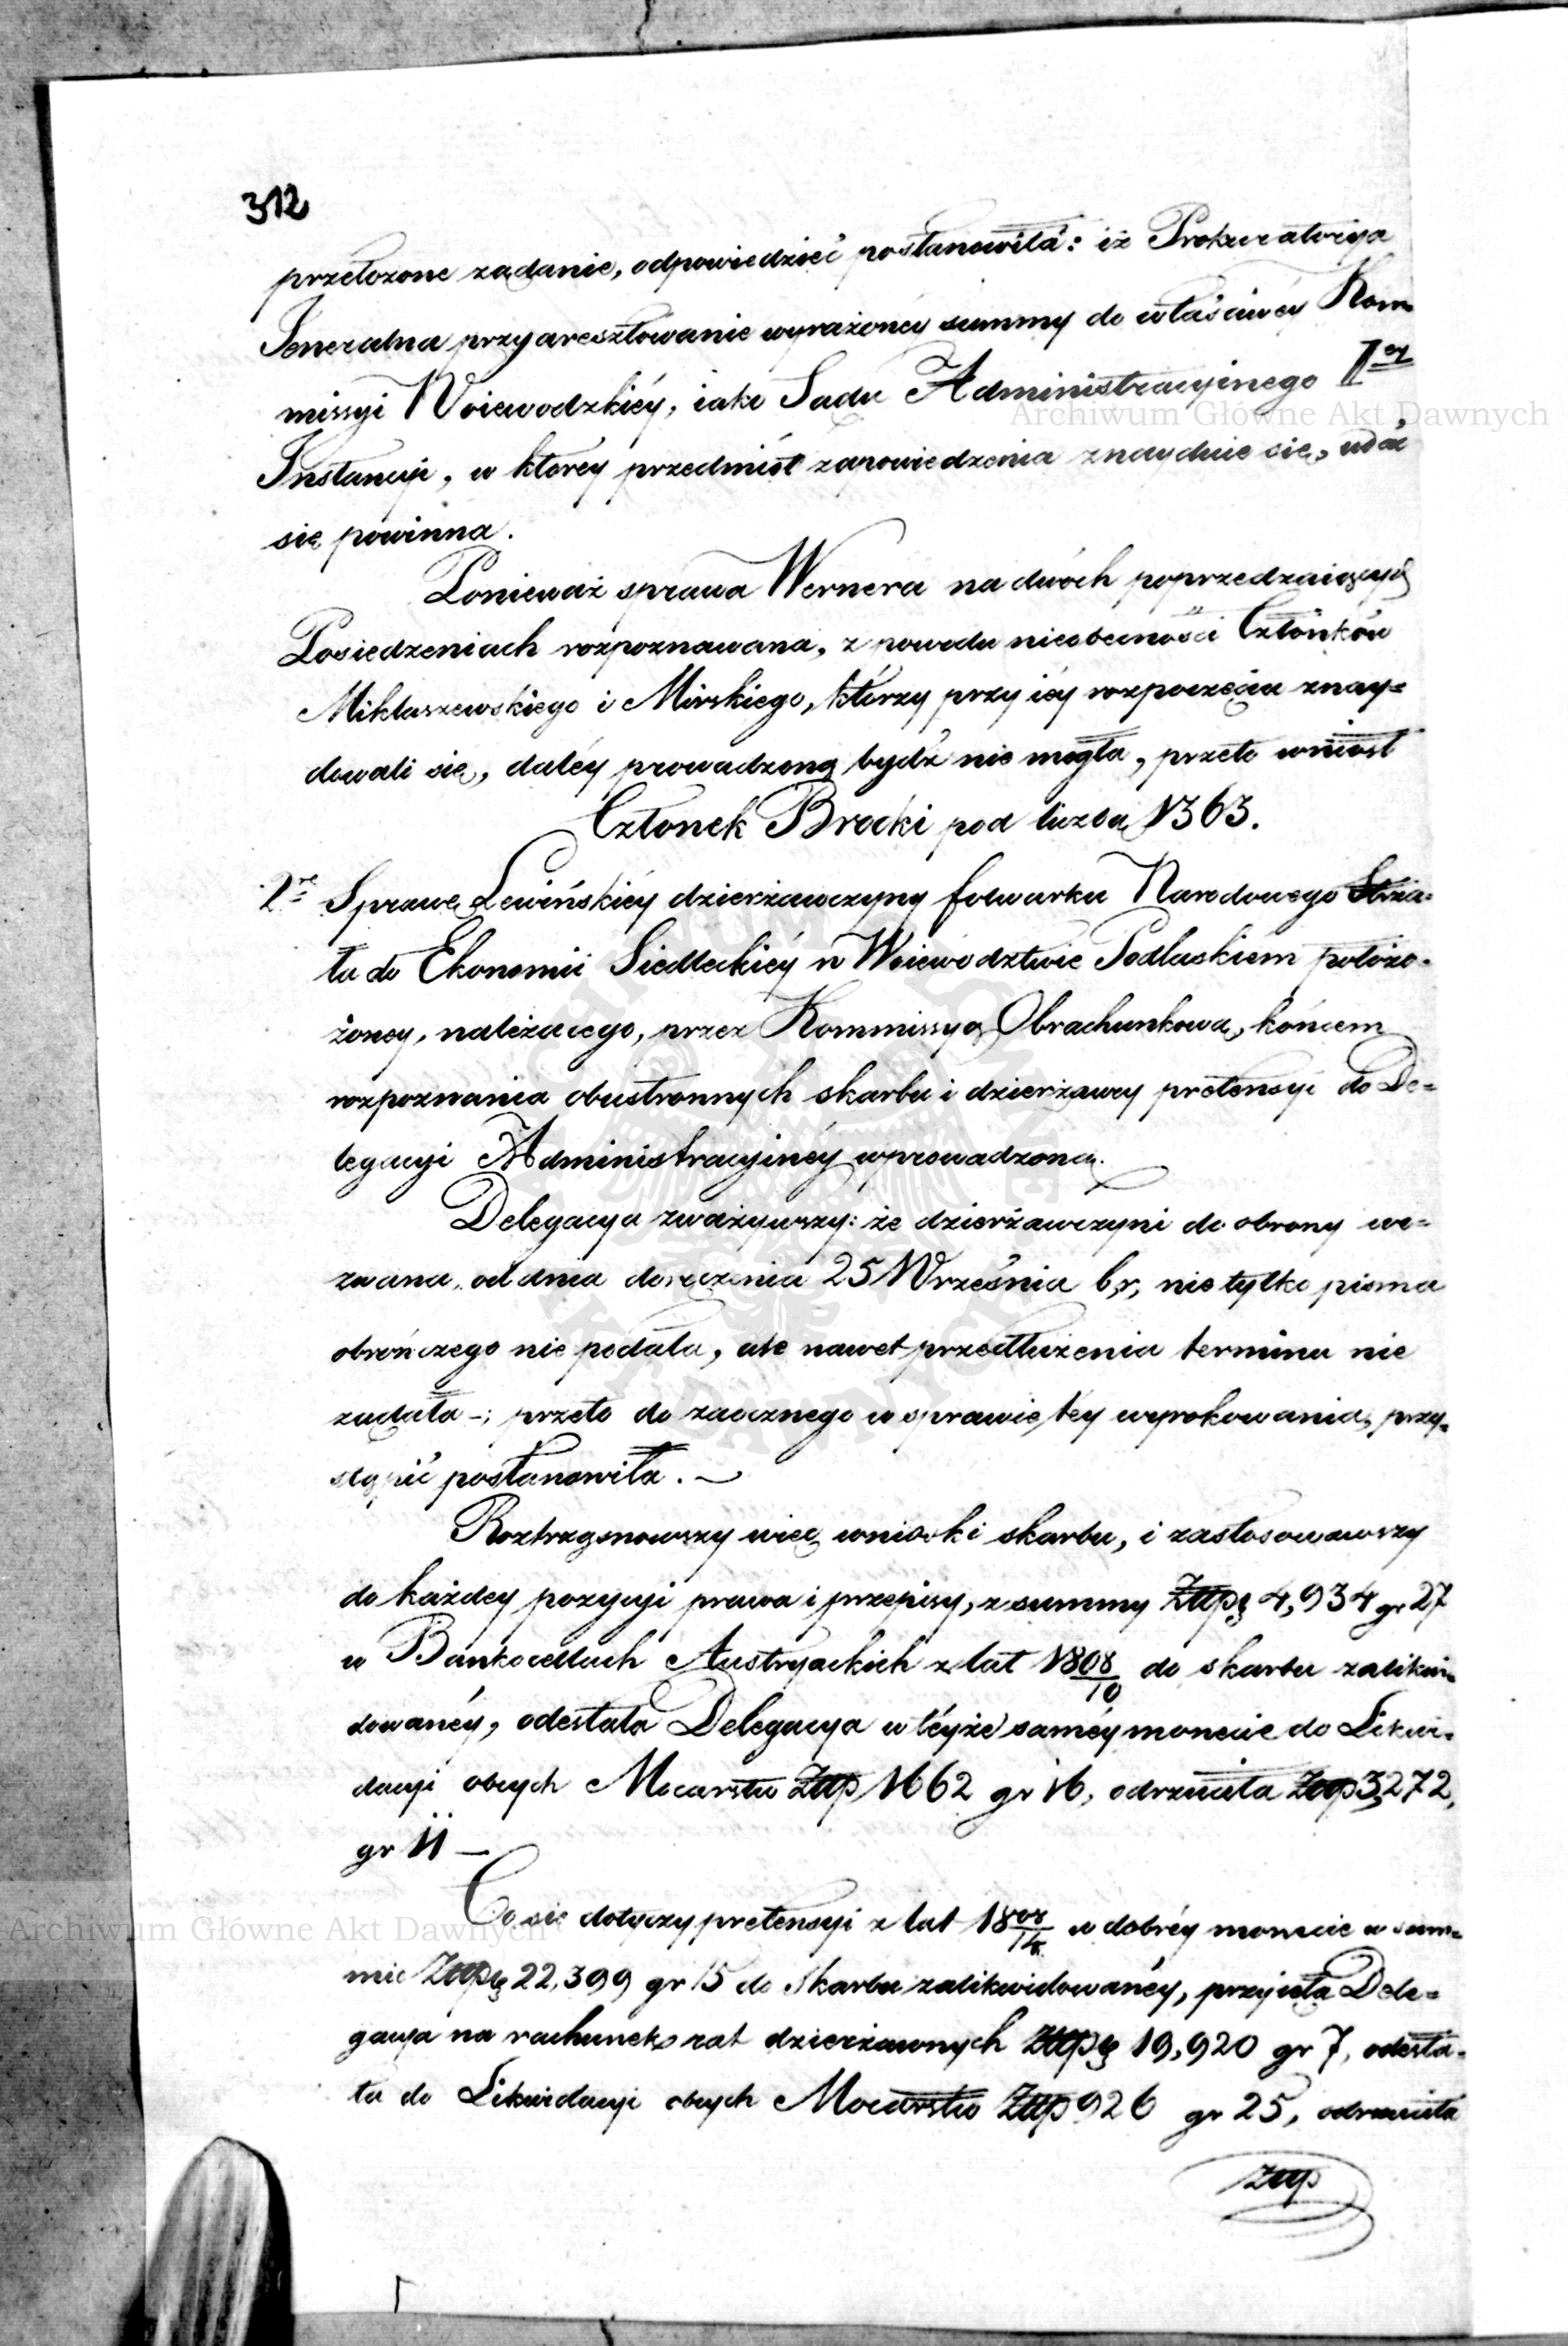 312
przełozone żądanie, odpowiedzieć postanowiła: iż Prokuratorija
Jeneralna przyaresztowanie wyrażoney summy do właściwey Kom
missyi Woiewodzkiéy, iako Sądu Administracyinego I<sup>ey</sup>
Instancyi, w którey przedmiot zapowiedzenia znayduie się, udać
się powinna.
Ponieważ sprawa Wernera na dwóch poprzedzaiących
Posiedzeniach rozpoznawana, z powodu nieobecności Członków
Miklaszewskiego i Mirskiego, którzy przy iéy rozpoczęciu znay=
dowali się, daléy prowadzoną bydź nie mogła, przeto wniosł
Członek Brocki pod liczbą 1363.
2<sup>re</sup> Sprawę Lewińskiéy dzierżawczyny folwarku Narodowego Strza=
ła do Ekonomii Siedleckiéy w Woiewodztwie Podlaskiém położo=
żoney, należącego, przez Kommissyą Obrachunkową, końcem
rozpoznania obustronnych skarbu i dzierżawcy pretensyi do De=
legacyi Administracyinéy wprowadzoną.
Delegacya zważywszy: że dzierżawczyni do obrony we=
zwana, od dnia doręczenia 25 Września b,r, nie tylko pisma
obrończego nie podała, ale nawet przedłużenia terminu nie
żądała -; przeto do zaocznego w sprawie tey wyrokowania, przy=
stąpić postanowiła. —
Roztrząsnowszy więc wnioski skarbu, i zastosowawszy
do każdey pozycyi prawa i przepisy, z summy Złłp 4,934 gr 27
w Bankocetlach Austryackich z lat 1808/10 do skarbu zalikwi=
dowanéy, odesłała Delegacya w téyże saméy monecie do Likwi=
dacyi obcych Mocarstw Złłp 1662 gr 16, odrzuciła Złłp 3,272,
gr 11 —
Co się dotyczy pretensyi z lat 1808/14 w dobréy monecie w sum=
mie Złłp 22,399 gr 15 do skarbu zalikwidowanéy, przyięła Dele=
gacya na rachunek rat dzierżawnych Złłp 19,920 gr 7, odesła=
ła do Likwidacyi obcych Mocarstw Złłp 926 gr 25, odrzuciła
Złłp
Archiwum Główne Akt Dawnych
Archiwum Główne Akt Dawnych